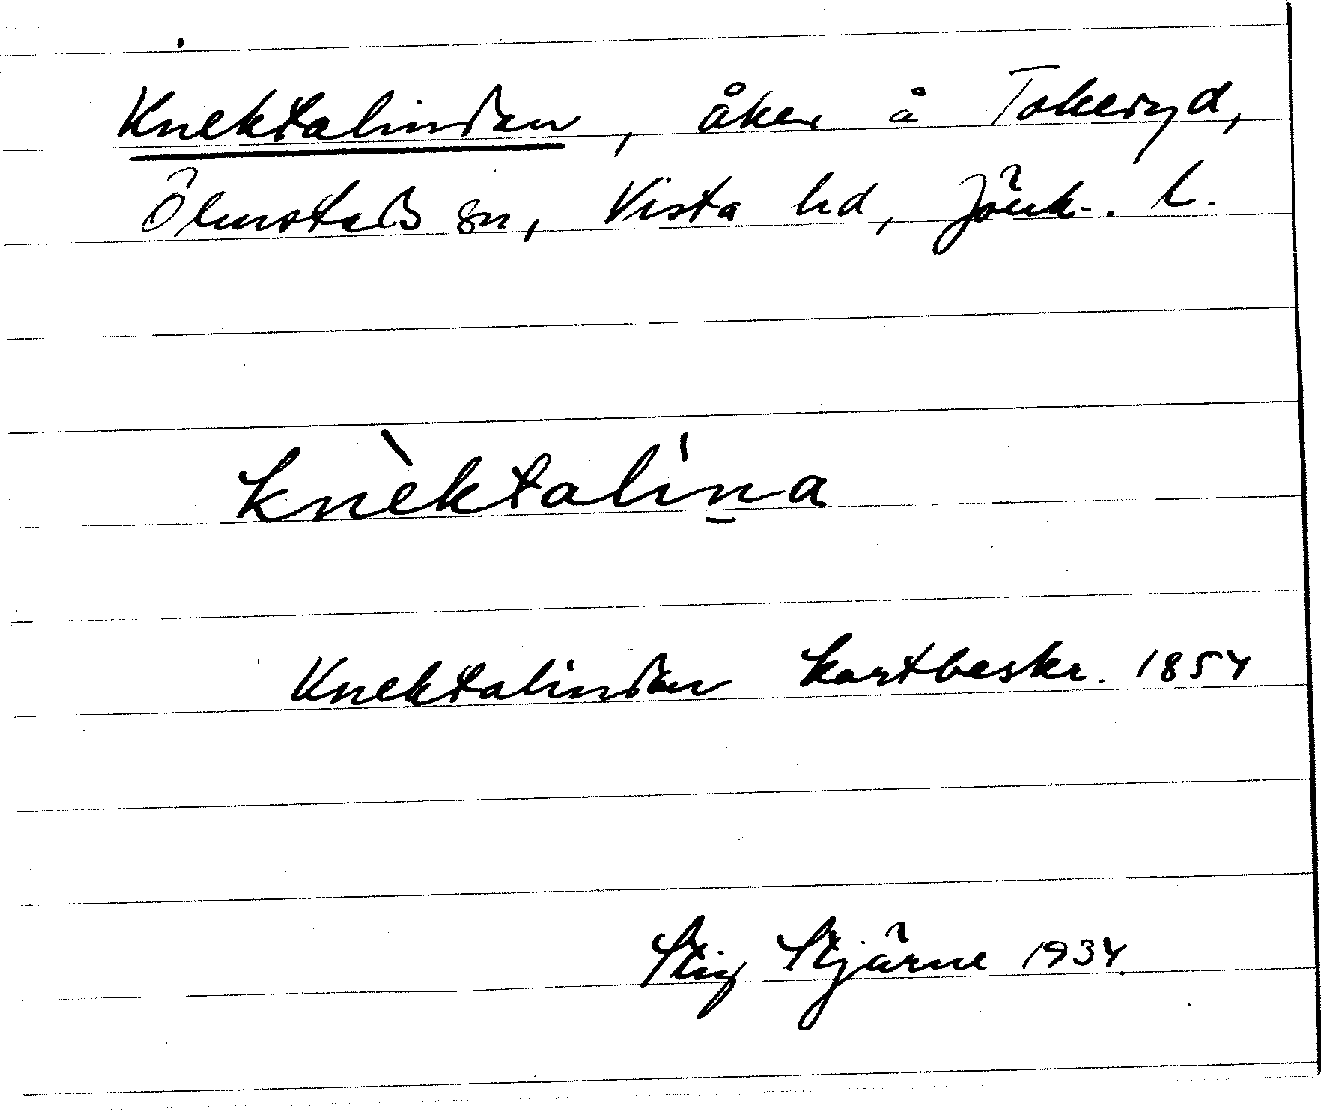 Knektalindan, åker å Tokeryd,
Ölmstads sn, Vista hd, Jönk. L.
knèktalína
Knektalindan kartbeskr. 1854
Stig Stjärne 1934